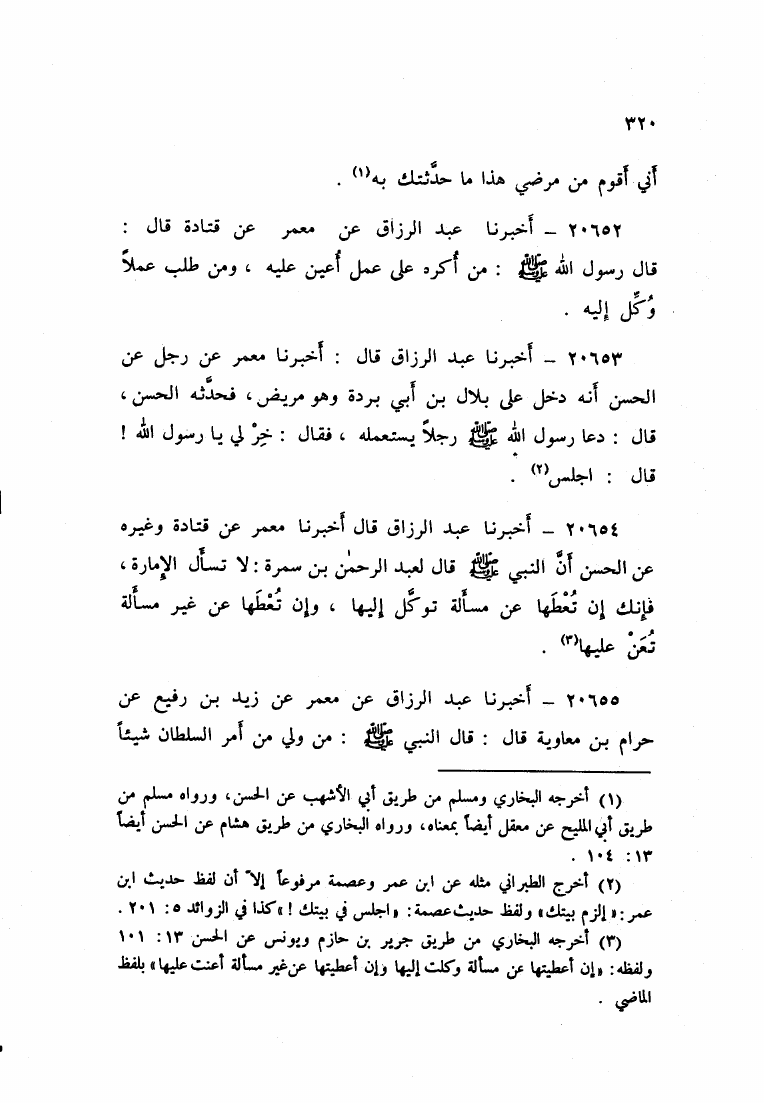 ٣٢٠
أَني أَقوم من مرضي هذا ما حدَّثتك به(١) .
٢٠٦٥٢ – أَخبرنا عبد الرزاق عن معمر عن قتادة قال :
قال رسول الله ﷺ : من أُكره على عمل أُعين عليه ، ومن طلب عملاً
وُكِّل إليه .
٢٠٦٥٣ – أَخبرنا عبد الرزاق قال : أَخبرنا معمر عن رجل عن
الحسن أَنه دخل على بلال بن أَبي بردة وهو مريض، فحدَّثه الحسن،
قال : دعا رسول الله ﷺ رجلاً يستعمله ، فقال : خِرْ لي يا رسول الله !
قال : اجلس(٢) .
٢٠٦٥٤ – أَخبرنا عبد الرزاق قال أَخبرنا معمر عن قتادة وغيره
عن الحسن أَنَّ النبي ﷺ قال لعبد الرحمٰن بن سمرة : لا تسأَل الإِمارة ،
فإنك إن تُعْطَها عن مسأَلة توكَّل إليها ، وإن تُعْطَها عن غير مسأَلة
تُعَنْ عليها(٣) .
٢٠٦٥٥ – أَخبرنا عبد الرزاق عن معمر عن زيد بن رفيع عن
حرام بن معاوية قال : قال النبي ﷺ : من ولي من أَمر السلطان شيئاً
(١) أخرجه البخاري ومسلم من طريق أبي الأشهب عن الحسن، ورواه مسلم من
طريق أبي المليح عن معقل أيضاً بمعناه، ورواه البخاري من طريق هشام عن الحسن أيضاً
١٣ : ١٠٤ .
(٢) أخرج الطبراني مثله عن ابن عمر وعصمة مرفوعاً إلاّ أن لفظ حديث ابن
عمر : « إلزم بيتك » ولفظ حديث عصمة : « اجلس في بيتك ! » كذا في الزوائد ٥ : ٢٠١ .
(٣) أخرجه البخاري من طريق جرير بن حازم ويونس عن الحسن ١٣ : ١٠١
ولفظه : « إن أعطيتها عن مسألة وكلت إليها وإن أعطيتها عن غير مسألة أعنت عليها » بلفظ
الماضي .